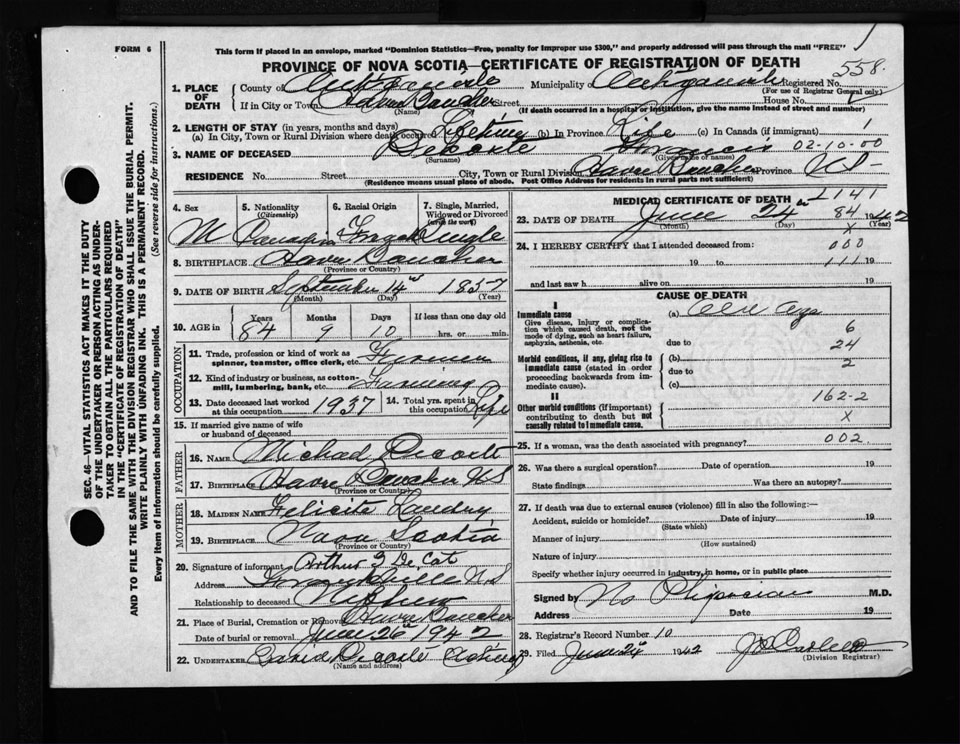 FORM 6
This form if placed in an envelope, marked "Dominion Statistics—Free, penalty for improper use $300," and properly addressed will pass through the mail "FREE"
PROVINCE OF NOVA SCOTIA—CERTIFICATE OF REGISTRATION OF DEATH
558
1. PLACE OF DEATH County of Antigonish Municipality Antigonish Registered No.
(For use of Registrar General only)
If in City or Town Havre Boucher Street House No.
(Name) (If death occurred in a hospital or institution, give the name instead of street and number)
2. LENGTH OF STAY (in years, months and days)
(a) In City, Town or Rural Division where death occurred Lifetime (b) In Province Life (c) In Canada (if immigrant)
3. NAME OF DECEASED Decoste Francis 02-10-00
(Surname) (Given name or names)
RESIDENCE No. Street City, Town or Rural Division Havre Boucher Province N S
(Residence means usual place of abode. Post Office Address for residents in rural parts not sufficient)
4. Sex 5. Nationality (Citizenship) 6. Racial Origin 7. Single, Married, Widowed or Divorced (write the word)
M Canadian French Single
8. BIRTHPLACE Havre Boucher
(Province or Country)
9. DATE OF BIRTH September 14 1857
(Month) (Day) (Year)
10. AGE in Years Months Days If less than one day old
84 9 10 hrs. or min.
OCCUPATION
11. Trade, profession or kind of work as spinner, teamster, office clerk, etc. Farmer
12. Kind of industry or business, as cotton-mill, lumbering, bank, etc. Farming
13. Date deceased last worked at this occupation 1937 14. Total yrs. spent in this occupation Life
15. If married give name of wife or husband of deceased
FATHER
16. NAME Michael Decoste
17. BIRTHPLACE Havre Boucher N S
(Province or Country)
MOTHER
18. MAIDEN NAME Felicite Landry
19. BIRTHPLACE Nova Scotia
(Province or Country)
20. Signature of informant Arthur
Address N S
Relationship to deceased Nephew
21. Place of Burial, Cremation or Removal Havre Boucher
Date of burial or removal June 26 1942
22. UNDERTAKER David Decoste (Acting)
(Name and address)
MEDICAL CERTIFICATE OF DEATH 1141
23. DATE OF DEATH June 24 84 1942
(Month) (Day) (Year)
X
24. I HEREBY CERTIFY that I attended deceased from: 000
19 to 111 19
and last saw h alive on 19
CAUSE OF DEATH
I
Immediate cause
Give disease, injury or complication which caused death, not the mode of dying, such as heart failure, asphyxia, asthenia, etc.
(a) Old Age
6
due to 24
Morbid conditions, if any, giving rise to immediate cause (stated in order proceeding backwards from immediate cause).
(b) 2
due to
(c)
II
Other morbid conditions (if important) contributing to death but not causally related to immediate cause.
162-2
X
25. If a woman, was the death associated with pregnancy? 002
26. Was there a surgical operation? Date of operation 19
State findings Was there an autopsy?
27. If death was due to external causes (violence) fill in also the following:—
Accident, suicide or homicide? Date of injury 19
(State which)
Manner of injury
(How sustained)
Nature of injury
Specify whether injury occurred in industry, in home, or in public place
Signed by No Physician M.D.
Address Date 19
28. Registrar's Record Number 10
29. Filed June 24 1942
(Division Registrar)
SEC. 46—VITAL STATISTICS ACT MAKES IT THE DUTY
OF THE UNDERTAKER OR PERSON ACTING AS UNDER-
TAKER TO OBTAIN ALL THE PARTICULARS REQUIRED
IN THE "CERTIFICATE OF REGISTRATION OF DEATH"
AND TO FILE THE SAME WITH THE DIVISION REGISTRAR WHO SHALL ISSUE THE BURIAL PERMIT.
WRITE PLAINLY WITH UNFADING INK. THIS IS A PERMANENT RECORD.
Every item of Information should be carefully supplied. (See reverse side for instructions.)